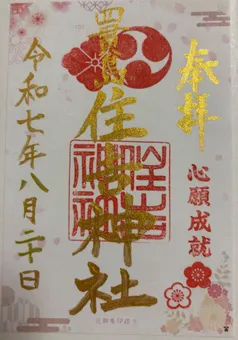 奉拝
心願成就
住吉神社
令和七年八月二十日